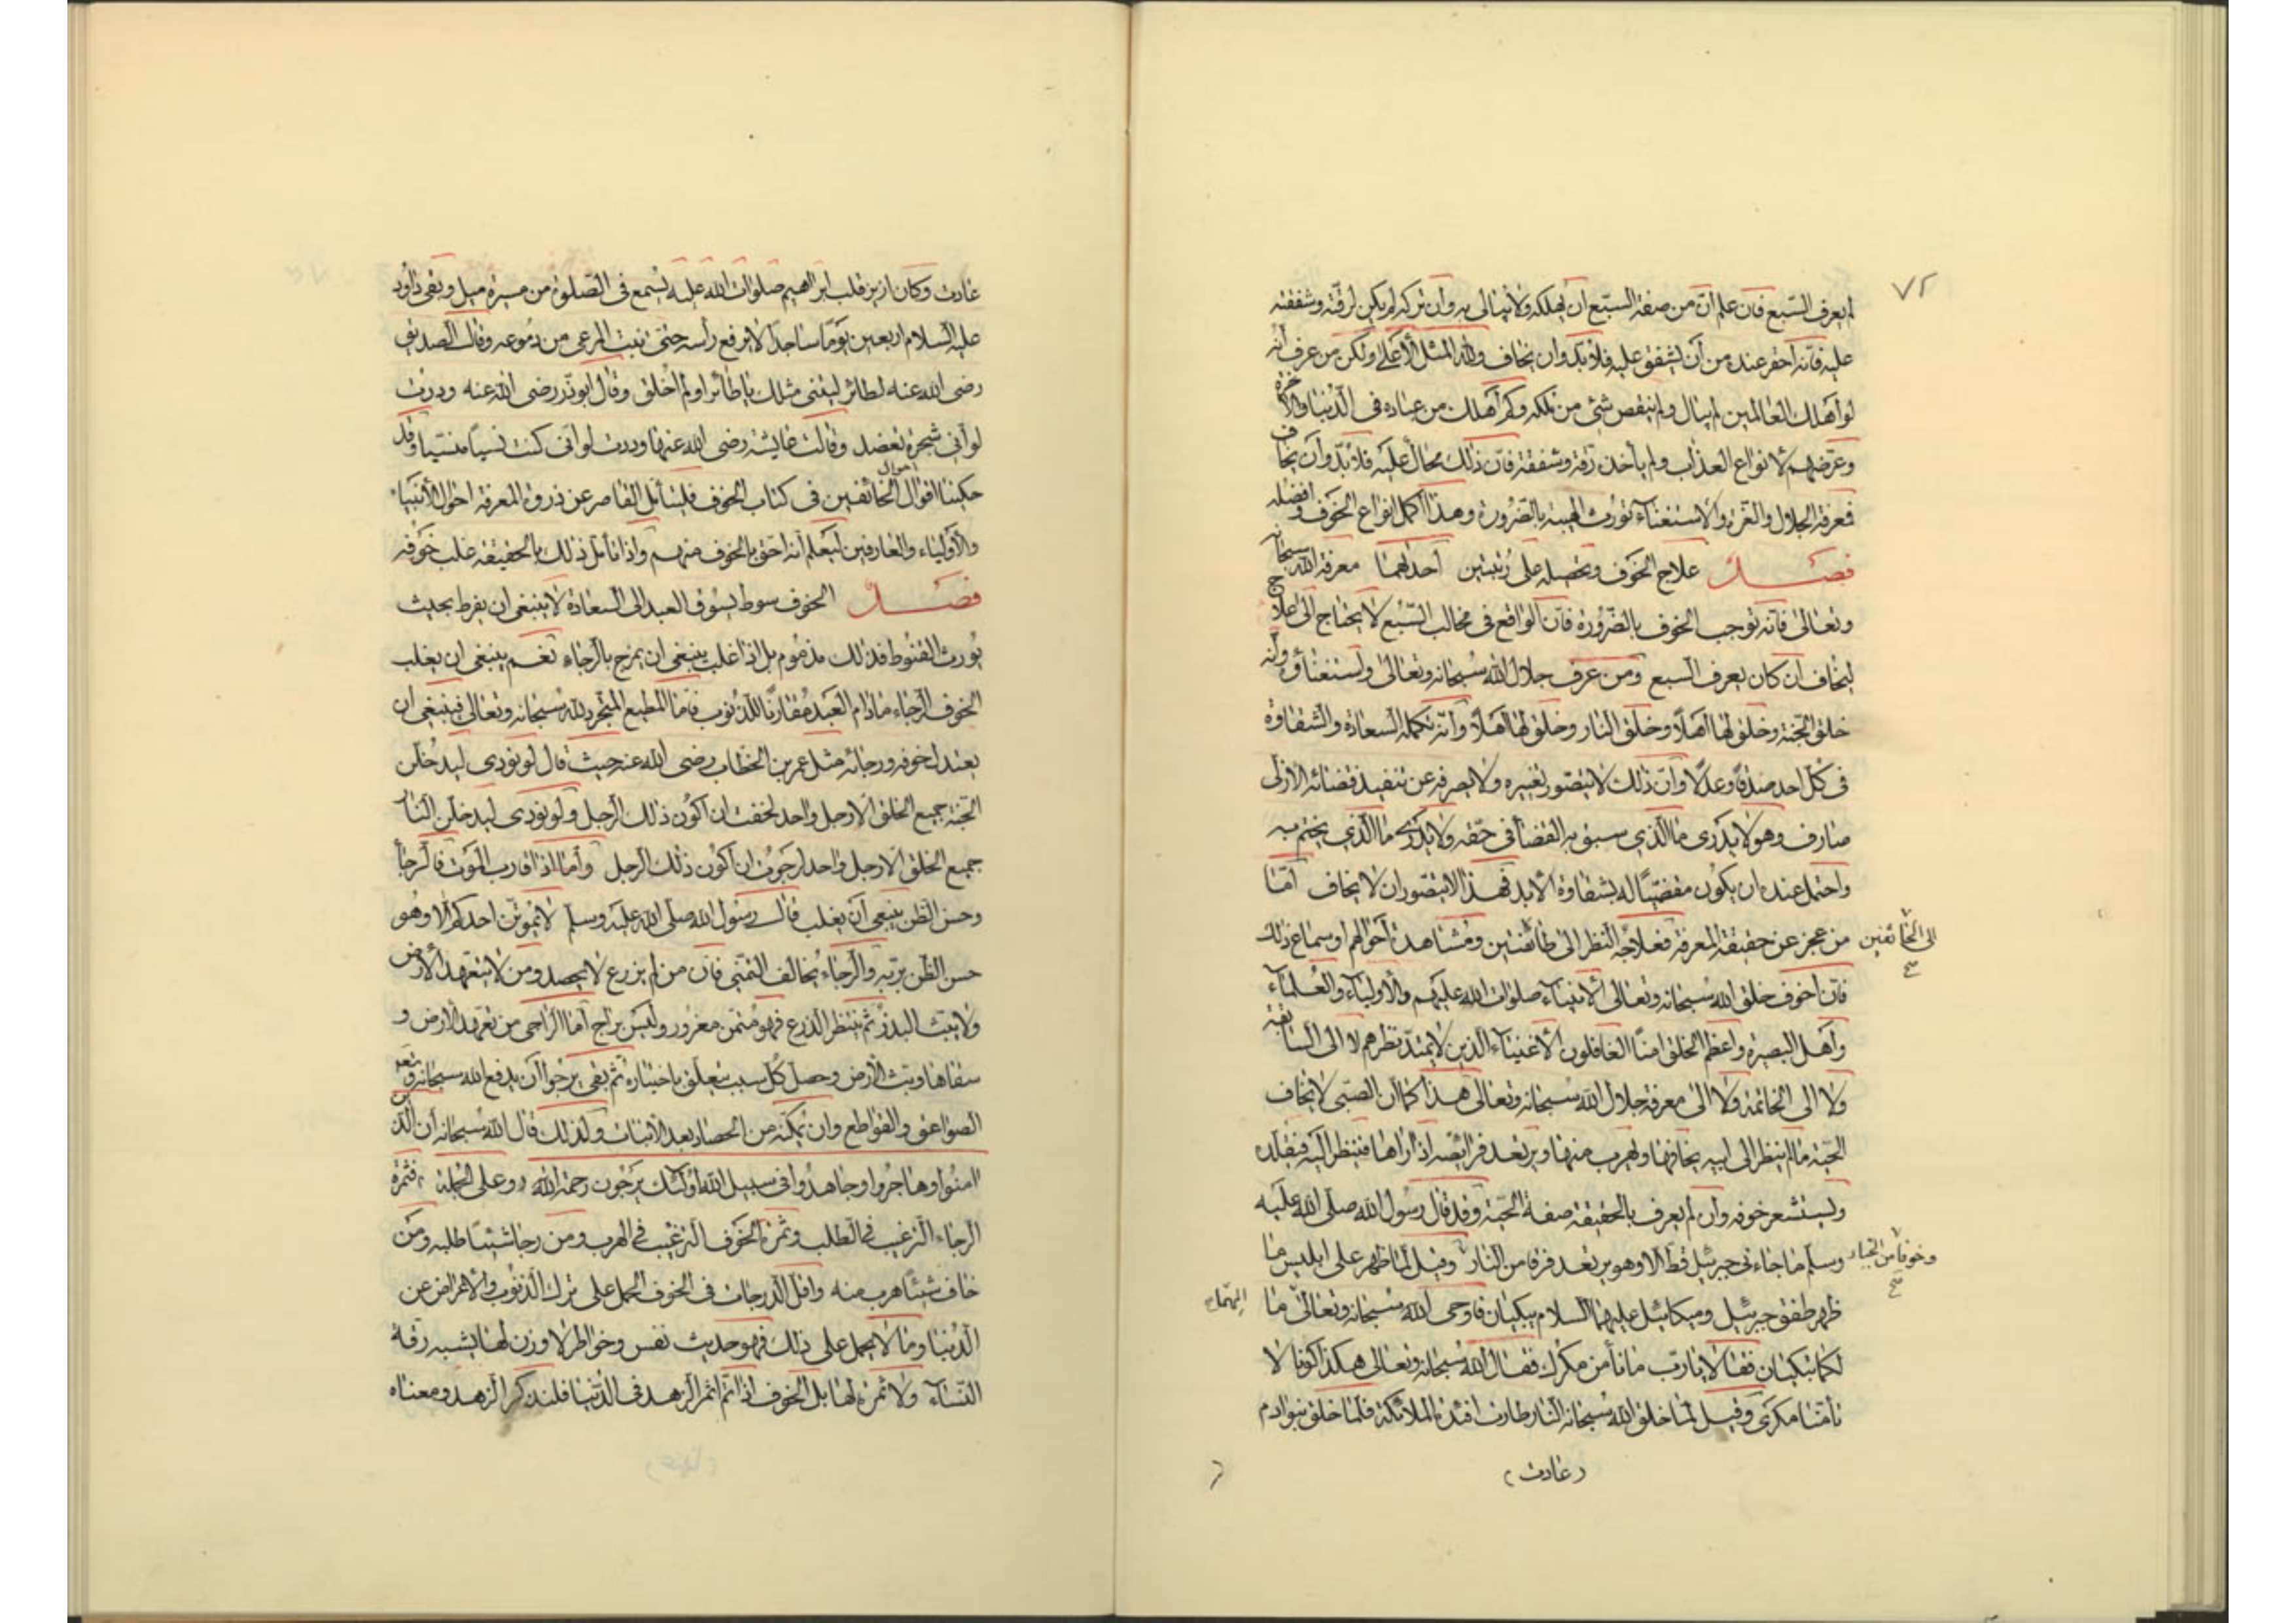 ٧٢
لم يعرف السبع فان علم ان من صفة السبع ان يهلكه ولا يبالى به وان تركه لم يكن لرقته وشفقته
عليه فانه احقر عنده من ان يشفق عليه فلا بد وان يخاف ولله المثل الأعلى ولكن من عرف انه
لو اهلك العالمين لم يبال ولم ينقص شئ من ملكه وكم اهلك من عباده فى الدنيا والآخرة
وعرّضهم لانواع العذاب ولم يأخذه رقة وشفقة فان ذلك محال عليه فلا بد وان يخاف
فمعرفة الجلال والعزة والاستغناء تورث الهيبة بالضرورة وهذا اكمل انواع الخوف وافضله
فصل علاج الخوف وتحصيله على رتبتين احدهما معرفة الله سبحانه
وتعالى فانه توجب الخوف بالضرورة فان الواقع فى مخالب السبع لا يحتاج الى علاج
ليخاف ان كان يعرف السبع ومن عرف جلال الله سبحانه وتعالى واستغناؤه وانه
خلق الجنة وخلق لها اهلا وخلق النار وخلق لها اهلا وانه تكمله السعادة والشقاوة
فى كل احد صدقا وعدلا وان ذلك لا يتصور تغييره ولا يصرفه عن تنفيذ قضائه الازلى
صارف وهو لا يدرى ما الذي سبق به القضا فى حقه ولا يدرى ما الذي يختم به
واحتمل عنده ان يكون مقضيا له بشقاوة الابد فهذا لا يتصور ان لا يخاف امّا
من عجز عن حقيقة المعرفة فعلاجه النظر الى طائفتين ومشاهدة احوالهم او سماع ذلك
الى الخائفين صح
فان اخوف خلق الله سبحانه وتعالى الأنبياء صلوات الله عليهم والأولياء والعلماء
وأهل البصيرة واعظم الخلق امنًا الغافلون الأغنياء الذين لا يمتد نظرهم لا الى السابقة
ولا الى الخاتمة ولا الى معرفة جلال الله سبحانه وتعالى هذا كما ان الصبى لا يخاف
الحية ما لم ينظر الى ابيه يخافها ويهرب منها ويرتعد فرائصه اذا راها فينظر اليه فيقلده
ويستشعر خوفه وان لم يعرف بالحقيقة صفة الحية وقد قال رسول الله صلى الله عليه
وسلم ما جاءنى جبرئيل قط الا وهو يرتعد فرقا من النار وقيل لما ظهر على ابليس ما
وخوفا من الجبار صح
ظهر طفق جبرئيل وميكائيل عليهما السلام يبكيان فاوحى الله سبحانه وتعالى ما
اليهما
لكما تبكيان فقالا يا رب ما نأمن مكرك فقال الله سبحانه وتعالى هكذا كونا لا
تأمنا مكرى وقيل لما خلق الله سبحانه النار طارت افئدة الملائكة فلما خلق بنو ادم
(عادت)
عادت وكان ازيز قلب ابراهيم صلوات الله عليه يسمع فى الصلوة من مسيرة ميل وبقى داود
عليه السلام اربعين يوما ساجدا لا يرفع رأسه حتى نبت المرعى من دموعه وقال الصديق
رضى الله عنه لطائر ليتنى مثلك يا طائر او لم اخلق وقال ابو ذر رضى الله عنه وددت
لو أنى شجرة تعضد وقالت عايشة رضى الله عنها وددت لو انى كنت نسيا منسيا وقد
حكينا اقوال الخائفين فى كتاب الخوف فليتأمل القاصر عن ذروة المعرفة احوال الأنبياء
احوال
والأولياء والعارفين ليعلم أنه احق بالخوف منهم واذا تأمل ذلك بالحقيقة غلب خوفه
فصل الخوف سوط يسوق العبد الى السعادة لا ينبغى ان يفرط بحيث
يورث القنوط فذلك مذموم بل اذا غلب ينبغى ان يمزج بالرجاء نعم ينبغى ان يغلب
الخوف الرجاء ما دام العبد مقارنا للذنوب فاما المطيع المتجرد لله سبحانه وتعالى فينبغى ان
يعتدل خوفه ورجائه مثل عمر بن الخطاب رضى الله عنه حيث قال لو نودى ليدخلن
الجنة جميع الخلق الا رجل واحد لخفت ان اكون ذلك الرجل ولو نودى ليدخلن النار
جميع الخلق الا رجل واحد لرجوت ان اكون ذلك الرجل وأما اذا قارب الموت فالرجاء
وحسن الظن ينبغى أن يغلب قال رسول الله صلى الله عليه وسلم لا يموتن احدكم الا وهو
حسن الظن بربه والرجاء يخالف التمنى فان من لم يزرع لا يحصد ومن لا يتعهد الأرض
ولا يبث البذر ثم ينتظر الزرع فهو متمن مغرور وليس براج اما الراجى من تعهد الأرض و
سقاها وبث الأرض وحصل كل سبب يتعلق باختياره ثم بقى يرجوا أن يدفع الله سبحانه وتعا
الصواعق والقواطع وان يمكنه من الحصاد بعد الأنبات ولذلك قال الله سبحانه أن الذين
امنوا وهاجروا وجاهدوا فى سبيل الله اولئك يرجون رحمة الله وعلى الجملة فثمرة
الرجاء الترغيب فى الطلب وثمرة الخوف الترغيب فى الهرب ومن رجا شيئا طلبه ومن
خاف شيئا هرب منه واقل الدرجات فى الخوف الحمل على ترك الذنوب والأعراض عن
الدنيا وما لا يحمل على ذلك فهو حديث نفس وخواطر لا وزن لها يشبه رقة
النساء ولا ثمرة لها بل الخوف اذا تم اثمر الزهد فى الدنيا فلنذكر الزهد ومعناه